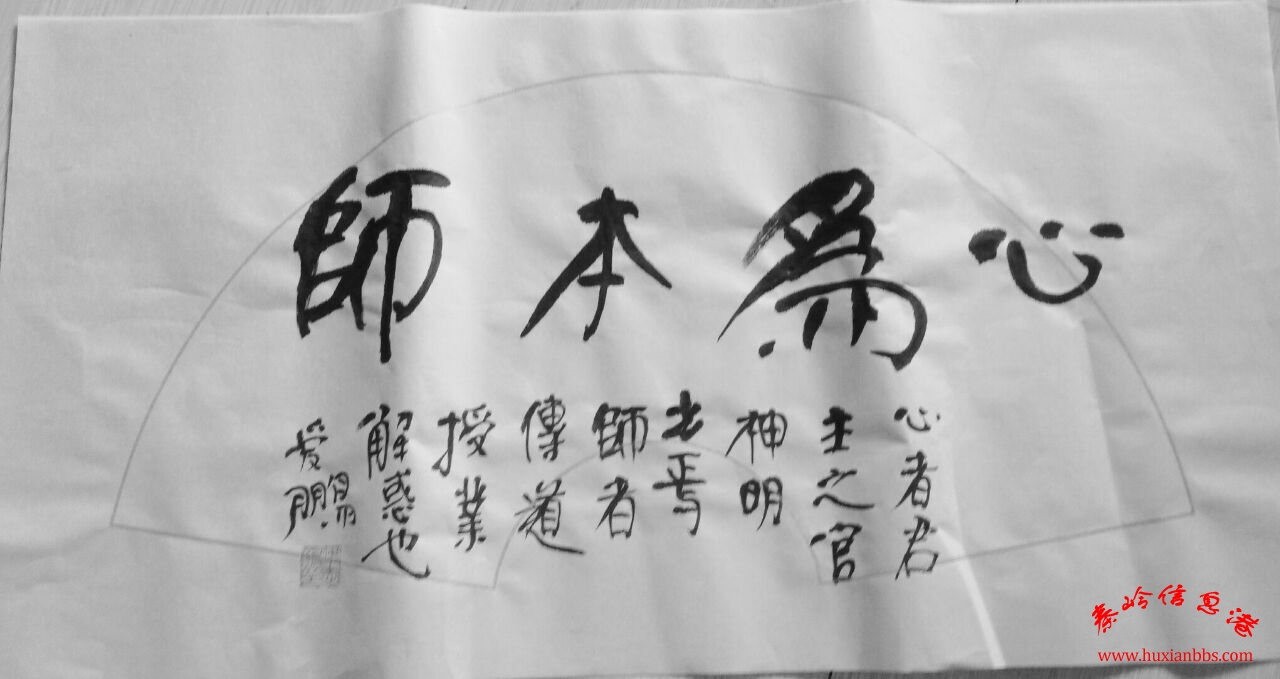 心爲本師
心者君
主之官
神明
出焉
師者
傳道
授業
解惑也
爱鵬
秦岭信息港
www.huxianbbs.com